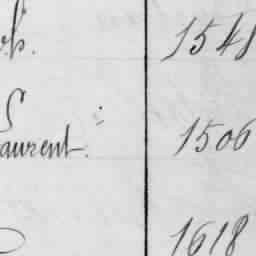 1548
Laurent. 1506
1618